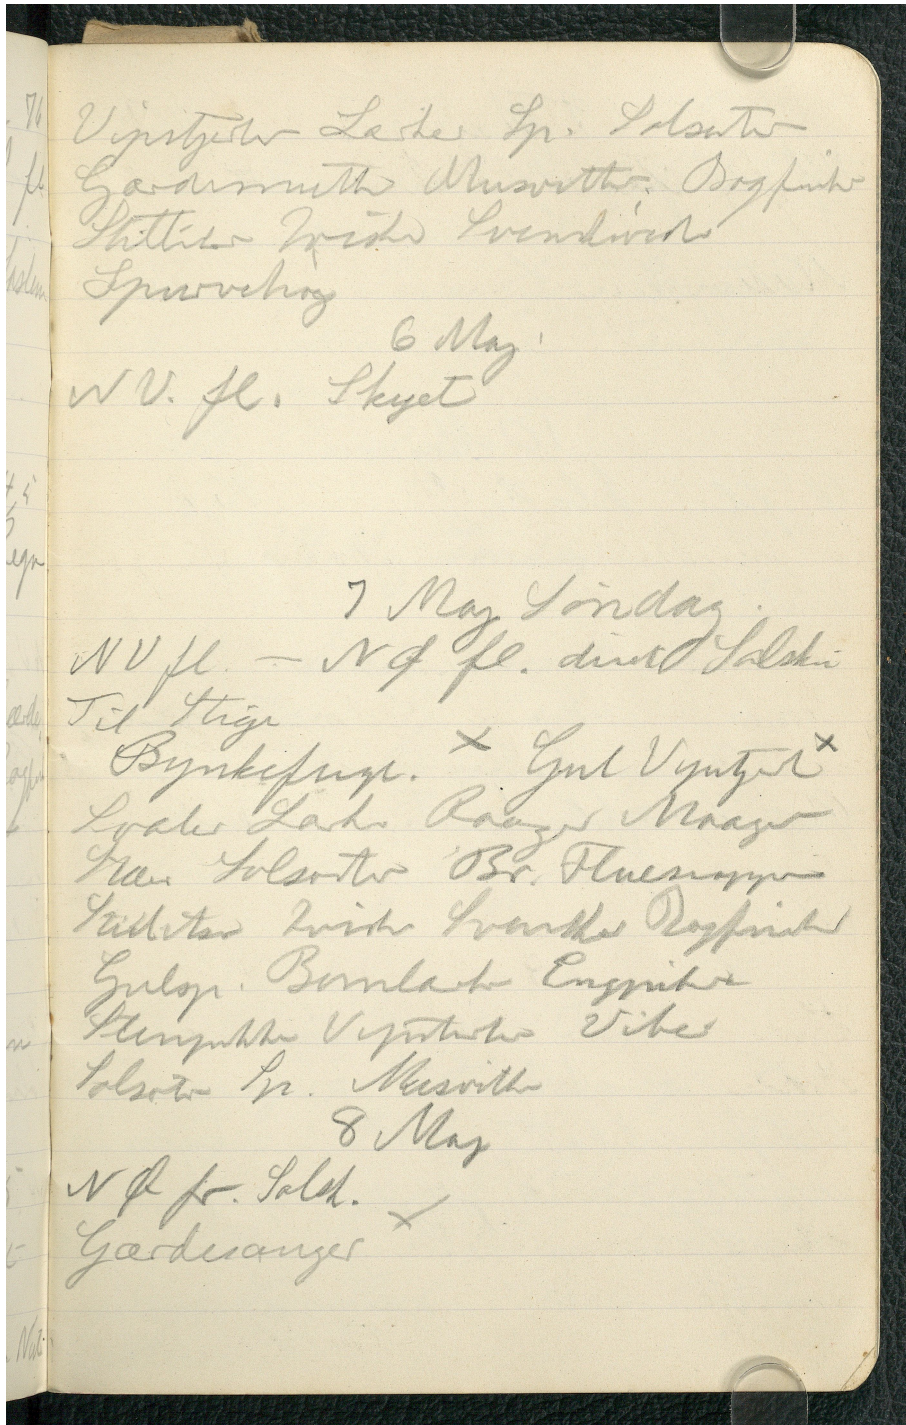 Vipstjerter Lærker Sp. Solsorter
Gærdesmutter Musvitter. Bogfinker
Stillitser Irisker Svenskirisk
Spurvehøg
6 Maj
NV. fl. Skyet
7 Maj Søndag.
NV fl. — NØ fl. Solskin
Til Stige
Bynkefugl. × Gul Vipstjert ×
Svaler Lærker Raager Maager
Stær Solsorter Br. Fluesnapper
Stillitser Irisker Bogfinker
Gulsp. Bomlærker Engpiber
Stenpikker Vipstjerter Viber
Solsorter Sp. Musvitter
8 Maj
NØ fr. Solsk.
Gærdesanger ×